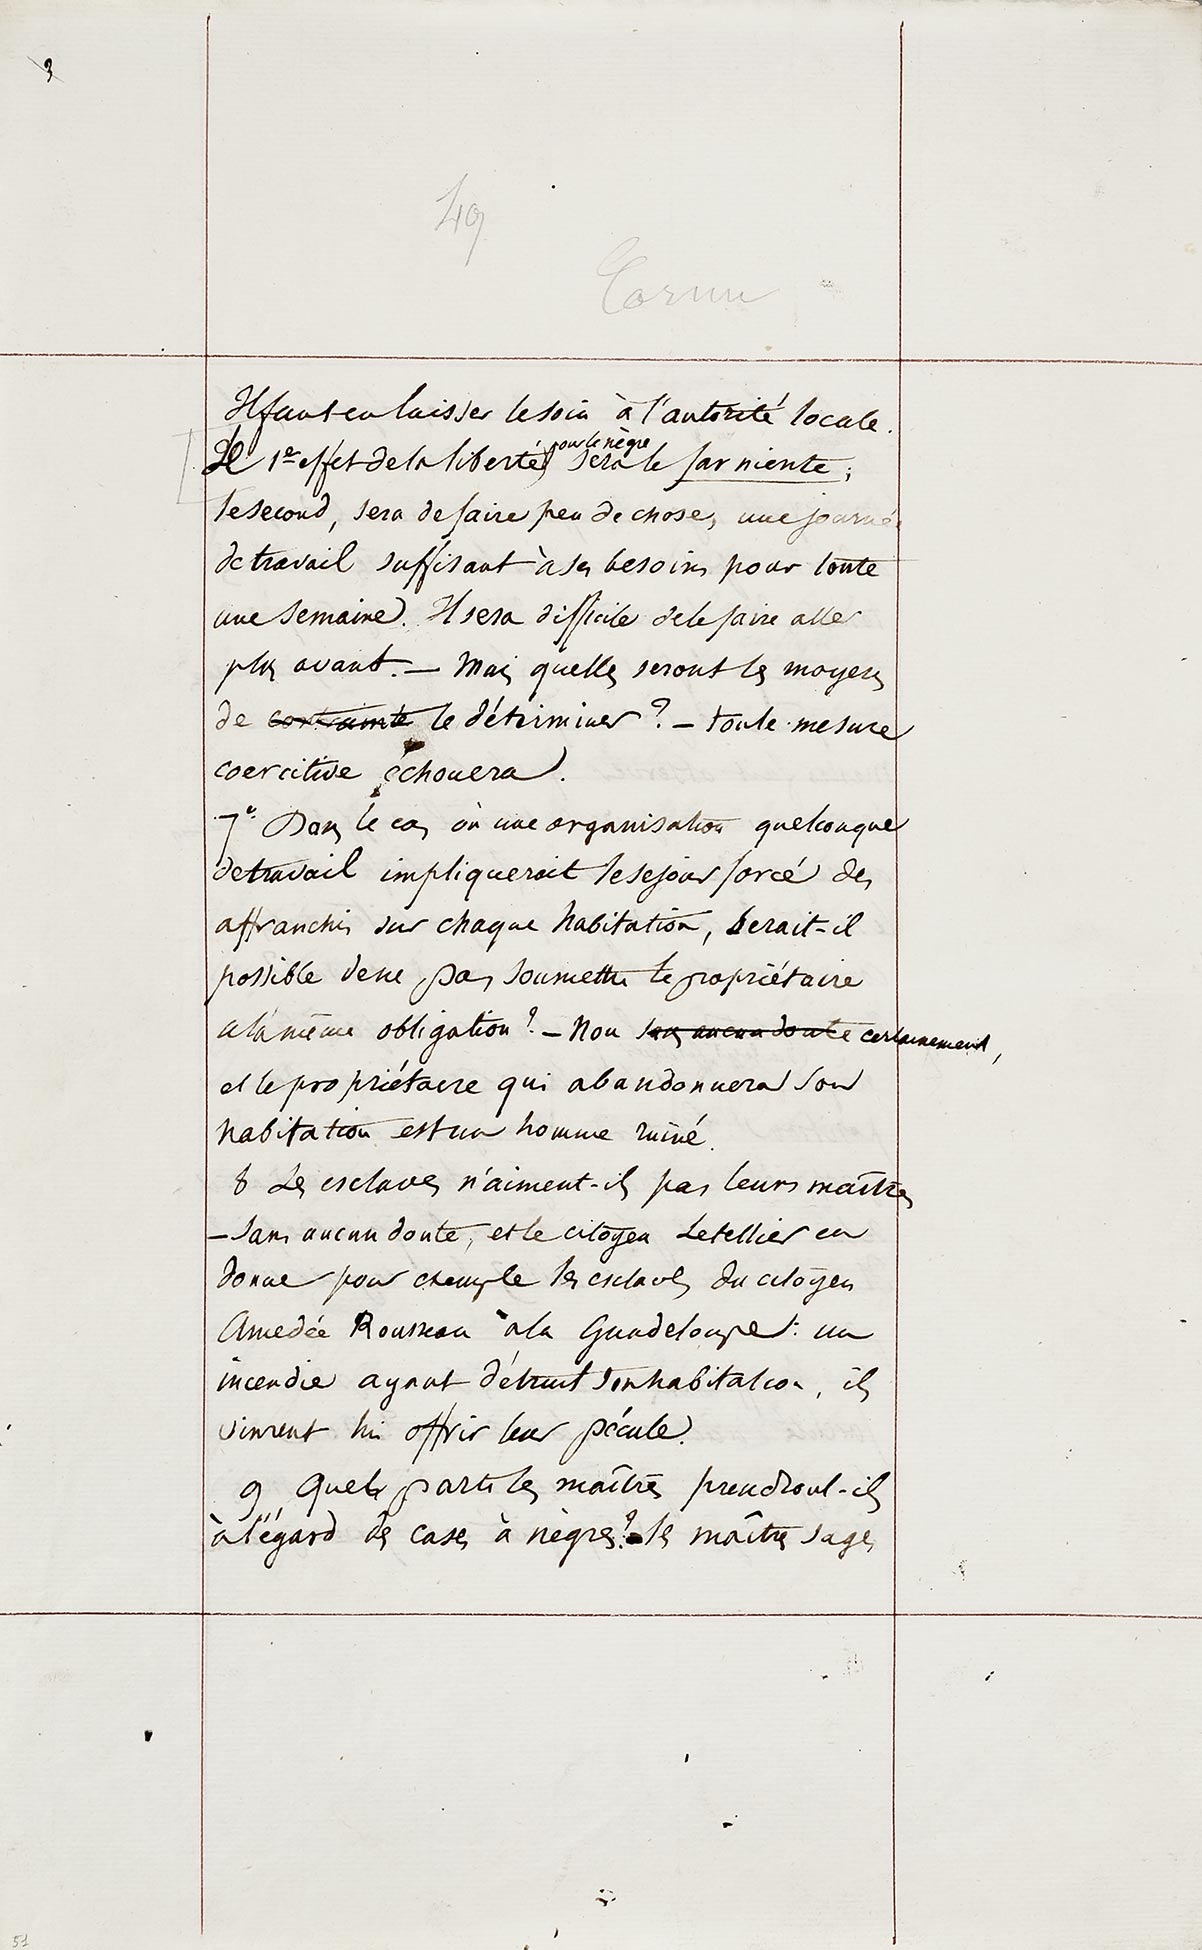 3
49
Il faut en laisser le soin à l'autorité locale.
Le 1er effet de la liberté pour le nègre sera le far niente ;
le second, sera de faire peu de choses, une journée
de travail suffisant à ses besoins pour toute
une semaine. Il sera difficile de le faire aller
plus avant. — Mais quelles seront les moyens
de contrainte le déterminer ? — toute mesure
coercitive échouera.
7e. Dans le cas où une organisation quelconque
de travail impliquerait le sejour forcé des
affranchis sur chaque habitation, Serait-il
possible de ne pas soumettre le propriétaire
à la même obligation ? — Non sans aucun doute certainement,
et le propriétaire qui abandonnera son
habitation est un homme ruiné.
8 Les esclaves n'aiment-ils pas leurs maîtres
— Sans aucun doute, et le citoyen Letellier en
donne pour exemple les esclaves du citoyen
Amedée Rousseau à la Guadeloupe : un
incendie ayant détruit son habitation, ils
vinrent lui offrir leur pécule.
9 Quels partis les maîtres prendront-ils
à l'égard des cases à nègres ? - les maîtres sages
51